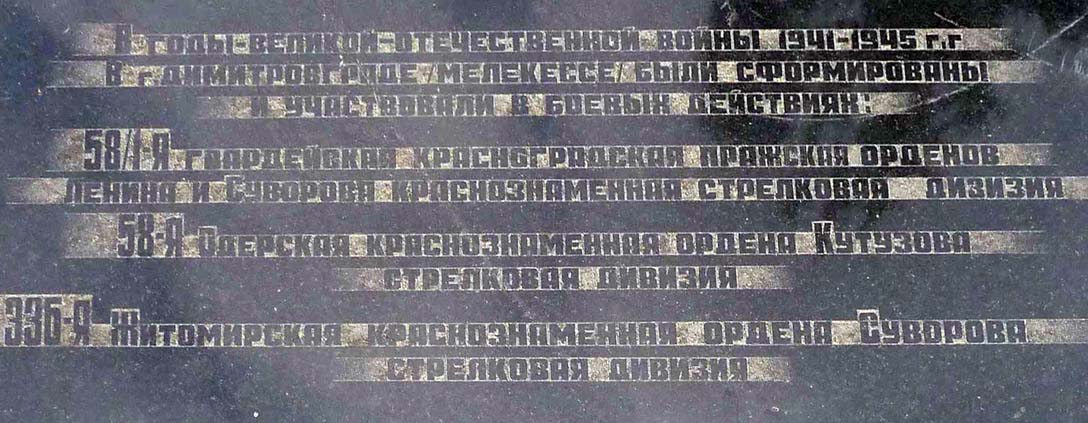 В годы Великой Отечественной войны 1941-1945 г.г
В г. Димитровграде /Мелекессе/ были сформированы
и участвовали в боевых действиях:
58/I-я гвардейская Красноградская Пражская орденов
Ленина и Суворова краснознаменная стрелковая дизизия
58-я Одерская краснознаменная ордена Кутузова
стрелковая дивизия
336-я Житомирская краснознаменная ордена Суворова
стрелковая дивизия